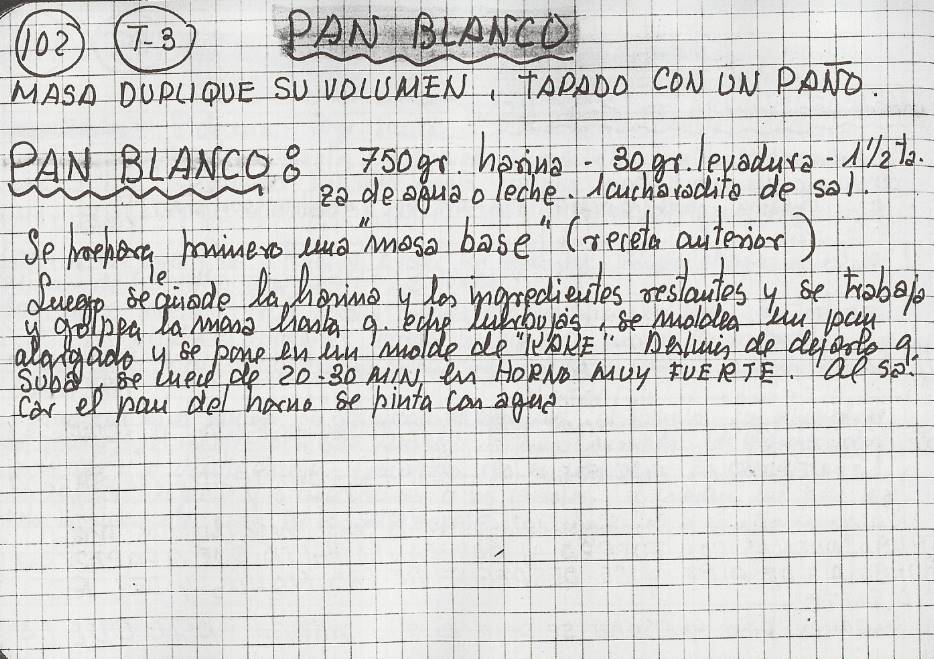 102 T-3 PAN BLANCO
MASA DUPLIQUE SU VOLUMEN, TAPADO CON UN PAÑO.
PAN BLANCO: 750 gr. harina - 30 gr. levadura - 1 1/2 ta.
za de agua o leche. 1 cucharadita de sal.
Se prepara primero una "masa base" (receta anterior)
Luego se le añade la harina y los ingredientes restantes y se trabaja
y golpea la masa hasta q. eche burbujas, se moldea un pan
alargado y se pone en un molde de "KAKE" Después de dejarlo q.
suba, se cuece de 20-30 MIN, en HORNO MUY FUERTE. Al sa-
car el pan del horno se pinta con agua